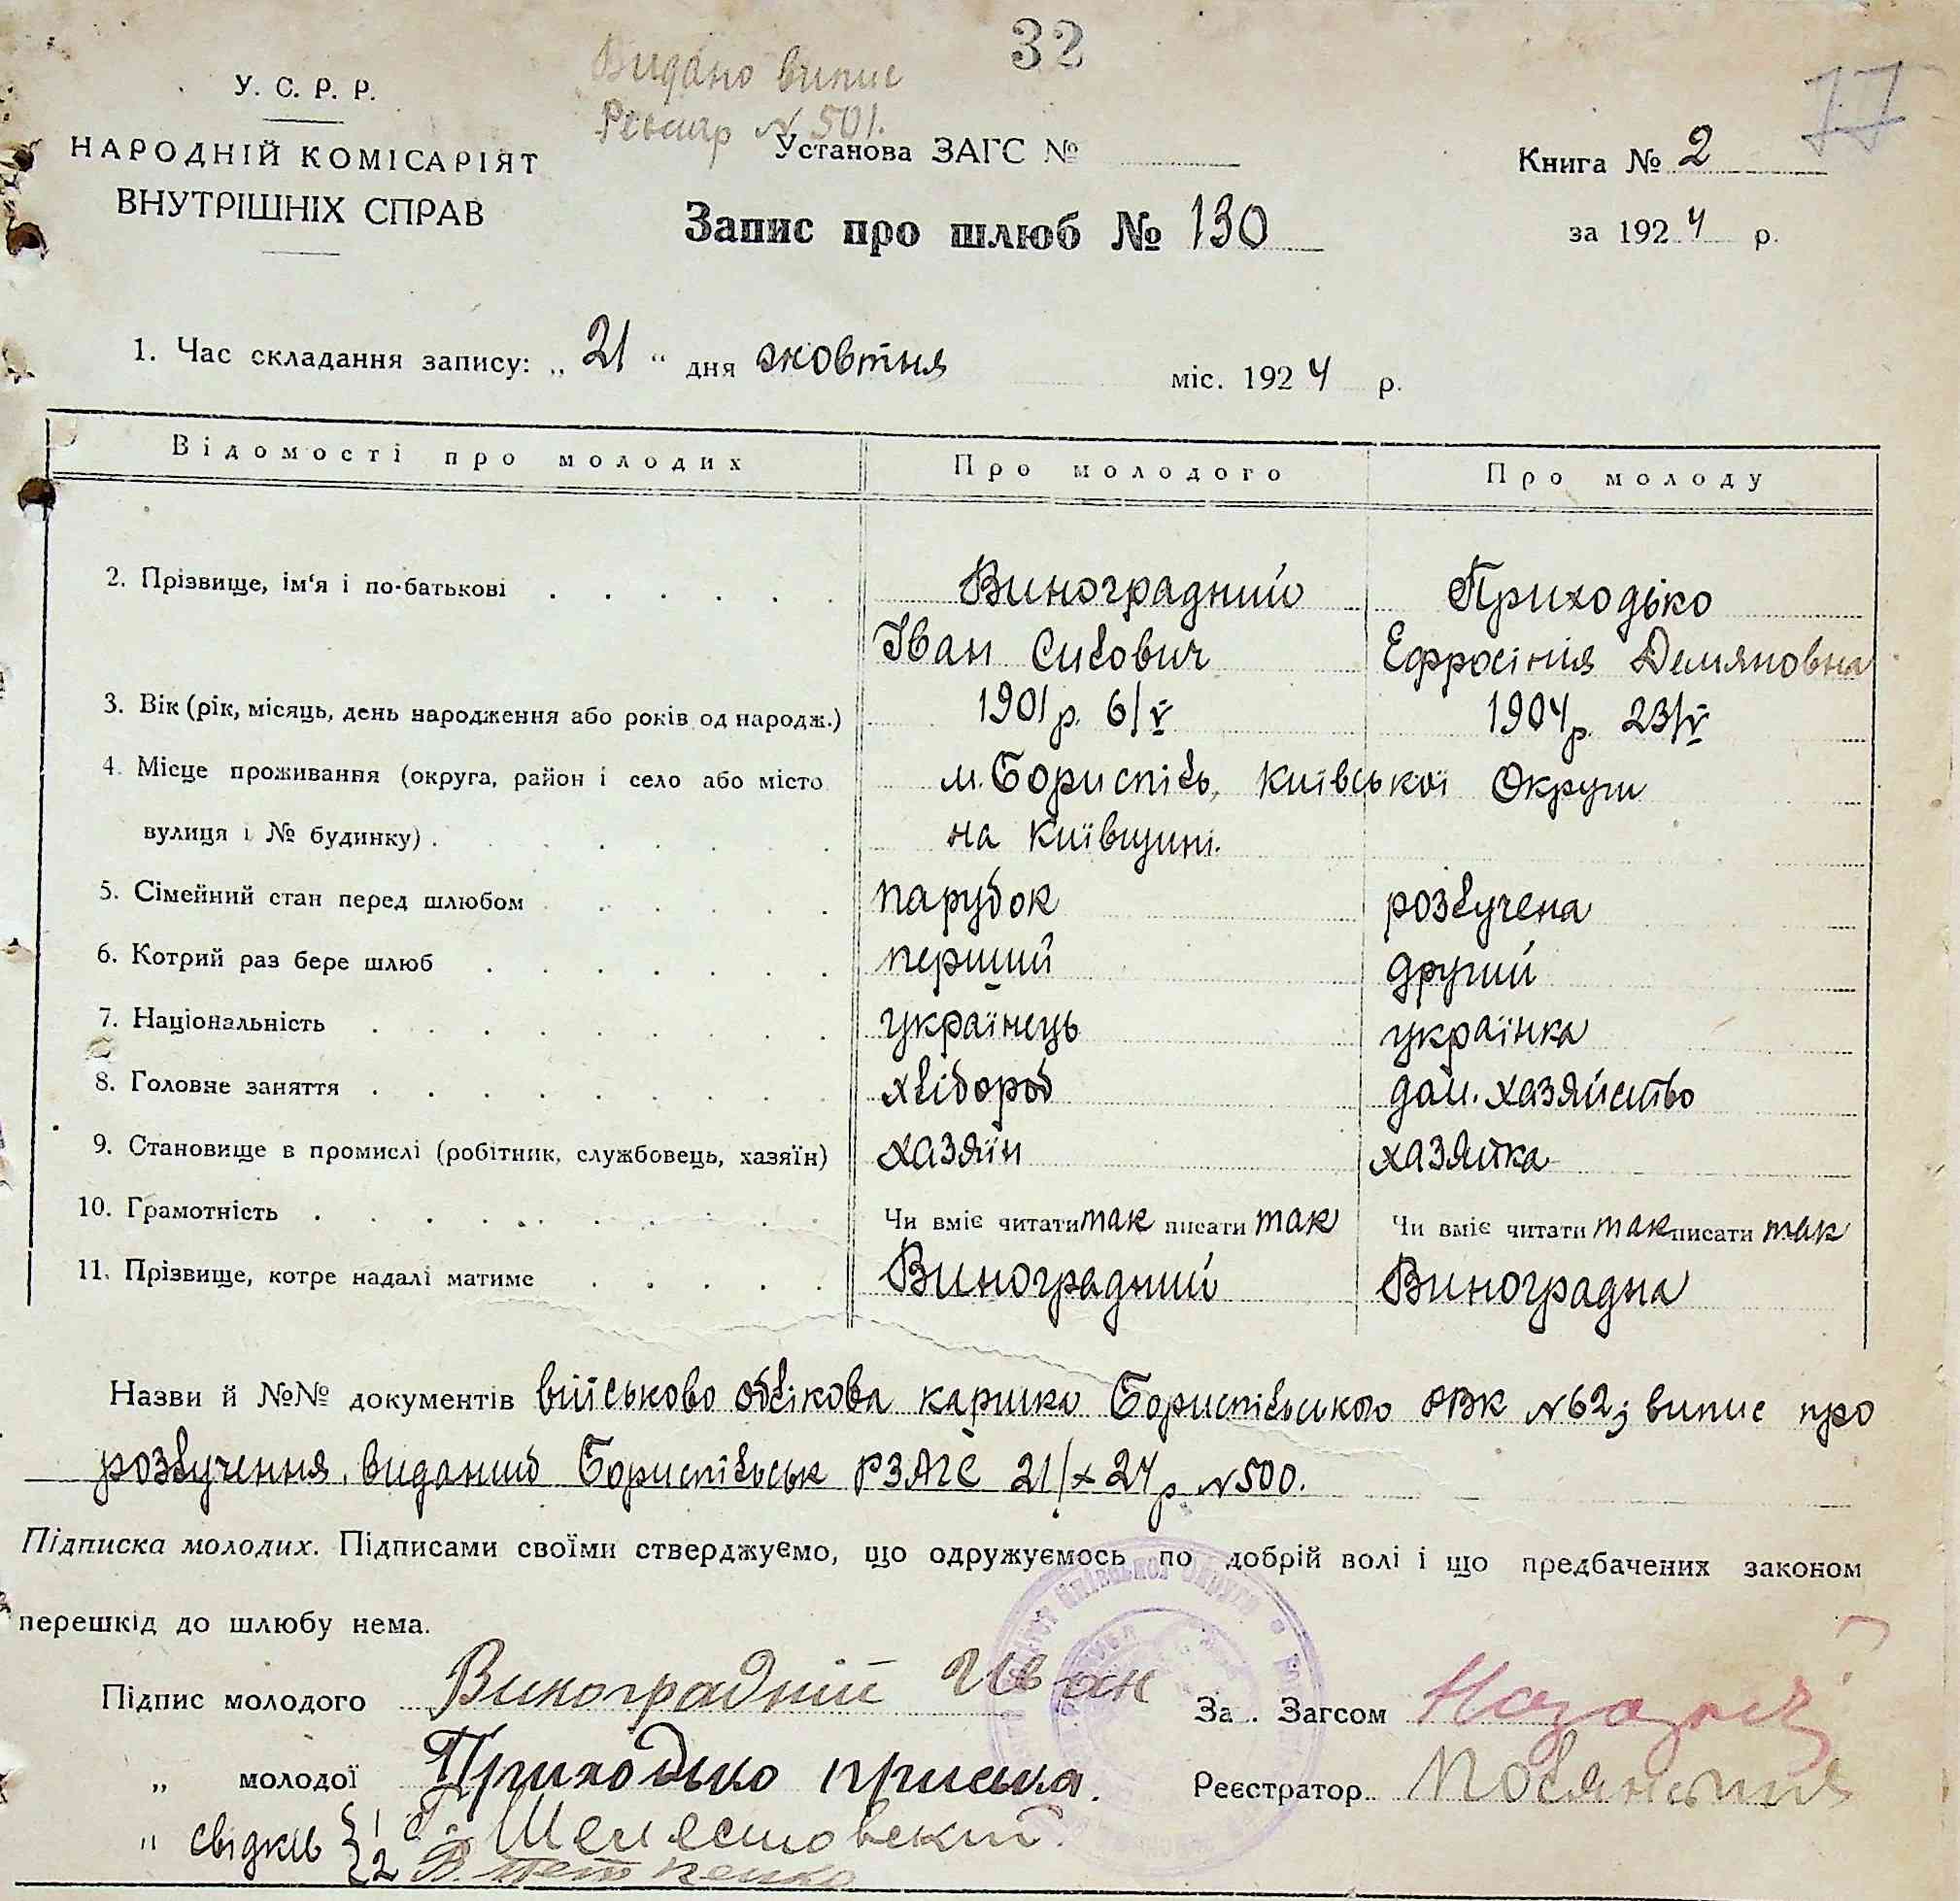 32
Видано випис
У. С. Р. Р.
Реєстр № 501.
77
НАРОДНІЙ КОМІСАРІЯТ
ВНУТРІШНІХ СПРАВ
Установа ЗАГС №
Книга № 2
Запис про шлюб № 130
за 1924 р.
1. Час складання запису: „21“ дня жовтня міс. 1924 р.
Відомості про молодих Про молодого Про молоду
2. Прізвище, ім‘я і по-батькові Виноградний Приходько
Іван Силович Ефросінія Демяновна
3. Вік (рік, місяць, день народження або років од народж.) 1901 р. 6/V 1904 р. 23/V
4. Місце проживання (округа, район і село або місто м. Бориспіль, Київської Округи
вулиця і № будинку) на Київщині.
5. Сімейний стан перед шлюбом парубок розлучена
6. Котрий раз бере шлюб перший другий
7. Національність українець українка
8. Головне заняття хлібороб дом. хазяйство
9. Становище в промислі (робітник, службовець, хазяїн) хазяїн хазяйка
10. Грамотність Чи вміє читати так писати так Чи вміє читати так писати так
11. Прізвище, котре надалі матиме Виноградний Виноградна
Назви й №№ документів військово облікова картка Бориспільського РВК № 62; випис про
розлучення, виданий Бориспільськ РЗАГС 21/X 24 р. № 500.
Підписка молодих. Підписами своїми стверджуємо, що одружуємось по добрій волі і що предбачених законом
перешкід до шлюбу нема.
Підпис молодого Виноградній Иван За . Загсом
„ молодої Приходько приська. Реєстратор
„ свідків { 1
2